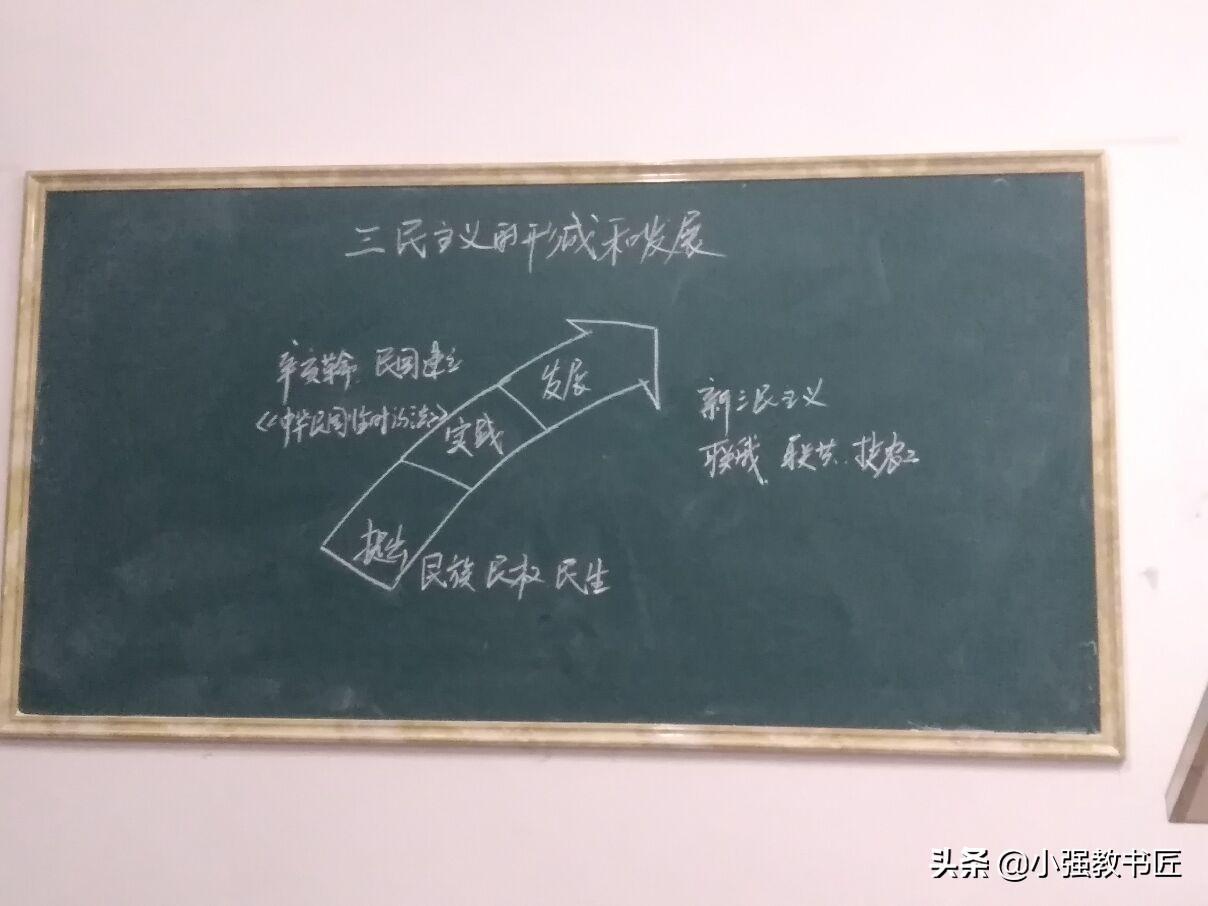 三民主义的形成和发展
辛亥革命 民国建立
《中华民国临时约法》
发展
实践
提出
民族 民权 民生
新三民主义
联俄 联共 扶农工
头条 @小强教书匠